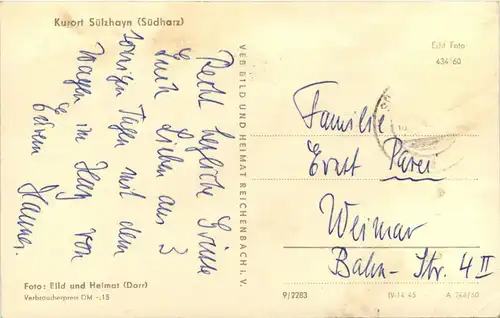 Kurort Sülzhayn (Südharz)
Recht herzliche Grüße
Euch Lieben aus 3
sonnigen Tagen mit dem
Wagen im Harz von
Eurem Hannes.
Foto: Bild und Heimat (Darr)
Verbraucherpreis DM -,15
VEB BILD UND HEIMAT REICHENBACH I. V.
Echt Foto
434/60
Familie
Ernst Parei
Weimar
Bahn-Str. 4 II
9/2283
IV-14-45
A 744/60